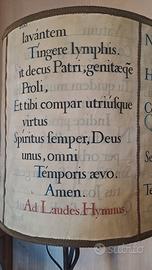 lavántem
Tíngere lymphis.
it decus Patri, genitæq́e
Proli,
Et tibi compar utriúsque
virtus
Spíritus semper, Deus
unus, omni
Témporis ævo.
Amen.
Ad Laudes. Hymnus.
subito